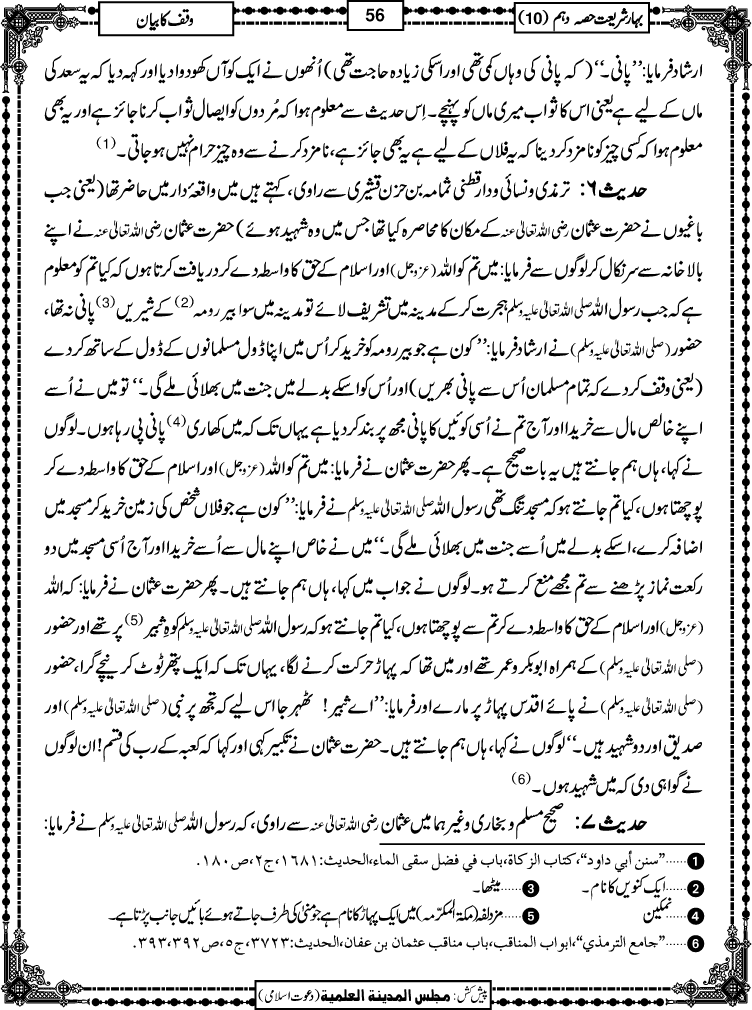 بہارِ شریعت حصہ دہم (10)
56
وقف کا بیان
ارشاد فرمایا: ’’پانی۔‘‘ (کہ پانی کی وہاں کمی تھی اور اسکی زیادہ حاجت تھی) اُنھوں نے ایک کوآں کھودوا دیا اور کہہ دیا کہ یہ سعد کی
ماں کے لیے ہے یعنی اس کا ثواب میری ماں کو پہنچے۔ اِس حدیث سے معلوم ہوا کہ مُردوں کو ایصالِ ثواب کرنا جائز ہے اور یہ بھی
معلوم ہوا کہ کسی چیز کو نامزد کردینا کہ یہ فلاں کے لیے ہے یہ بھی جائز ہے، نامزد کرنے سے وہ چیز حرام نہیں ہوجاتی۔(1)
حدیث ۶: ترمذی و نسائی و دارقطنی ثمامہ بن حزن قشیری سے راوی، کہتے ہیں میں واقعۂ دار میں حاضر تھا (یعنی جب
باغیوں نے حضرت عثمان رضی اللہ تعالٰی عنہ کے مکان کا محاصرہ کیا تھا جس میں وہ شہید ہوئے) حضرت عثمان رضی اللہ تعالٰی عنہ نے اپنے
بالا خانہ سے سر نکال کر لوگوں سے فرمایا: میں تم کو اللہ (عزوجل) اور اسلام کے حق کا واسطہ دے کر دریافت کرتا ہوں کہ کیا تم کو معلوم
ہے کہ جب رسول اللہ صلی اللہ تعالٰی علیہ وسلم ہجرت کرکے مدینہ میں تشریف لائے تو مدینہ میں سوا بیر رومہ(2) کے شیریں(3) پانی نہ تھا،
حضور (صلی اللہ تعالٰی علیہ وسلم) نے ارشاد فرمایا: ’’کون ہے جو بیر رومہ کو خرید کر اُس میں اپنا ڈول مسلمانوں کے ڈول کے ساتھ کردے
(یعنی وقف کردے کہ تمام مسلمان اُس سے پانی بھریں) اور اُس کو اسکے بدلے میں جنت میں بھلائی ملے گی۔‘‘ تو میں نے اُسے
اپنے خالص مال سے خریدا اور آج تم نے اُسی کوئیں کا پانی مجھ پر بند کر دیا ہے یہاں تک کہ میں کھاری(4) پانی پی رہا ہوں۔ لوگوں
نے کہا، ہاں ہم جانتے ہیں یہ بات صحیح ہے۔ پھر حضرت عثمان نے فرمایا: میں تم کو اللہ (عزوجل) اور اسلام کے حق کا واسطہ دے کر
پوچھتا ہوں، کیا تم جانتے ہو کہ مسجد تنگ تھی رسول اللہ صلی اللہ تعالٰی علیہ وسلم نے فرمایا: ’’کون ہے جو فلاں شخص کی زمین خرید کر مسجد میں
اضافہ کرے، اسکے بدلے میں اُسے جنت میں بھلائی ملے گی۔‘‘ میں نے خاص اپنے مال سے اُسے خریدا اور آج اُسی مسجد میں دو
رکعت نماز پڑھنے سے تم مجھے منع کرتے ہو۔ لوگوں نے جواب میں کہا، ہاں ہم جانتے ہیں۔ پھر حضرت عثمان نے فرمایا: کہ اللہ
(عزوجل) اور اسلام کے حق کا واسطہ دے کر تم سے پوچھتا ہوں، کیا تم جانتے ہو کہ رسول اللہ صلی اللہ تعالٰی علیہ وسلم کوہِ ثبیر(5) پر تھے اور حضور
(صلی اللہ تعالٰی علیہ وسلم) کے ہمراہ ابوبکر و عمر تھے اور میں تھا کہ پہاڑ حرکت کرنے لگا، یہاں تک کہ ایک پتھر ٹوٹ کر نیچے گرا، حضور
(صلی اللہ تعالٰی علیہ وسلم) نے پائے اقدس پہاڑ پر مارے اور فرمایا: ’’اے ثبیر! ٹھہر جا اس لیے کہ تجھ پر نبی (صلی اللہ تعالٰی علیہ وسلم) اور
صدیق اور دو شہید ہیں۔‘‘ لوگوں نے کہا، ہاں ہم جانتے ہیں۔ حضرت عثمان نے تکبیر کہی اور کہا کہ کعبہ کے رب کی قسم! ان لوگوں
نے گواہی دی کہ میں شہید ہوں۔(6)
حدیث ۷: صحیح مسلم و بخاری وغیرہما میں عثمان رضی اللہ تعالٰی عنہ سے راوی، کہ رسول اللہ صلی اللہ تعالٰی علیہ وسلم نے فرمایا:
1 ......’’سنن أبي داود‘‘،کتاب الزکاة،باب في فضل سقی الماء،الحدیث:۱۶۸۱،ج۲،ص۱۸۰.
2 ......ایک کنویں کا نام۔ 3 ......میٹھا۔
4 ......نمکین 5 ......مزدلفہ (مکۃ المکرّمہ) میں ایک پہاڑ کا نام ہے جو منیٰ کی طرف جاتے ہوئے بائیں جانب پڑتا ہے۔
6 ......’’جامع الترمذي‘‘،ابواب المناقب،باب مناقب عثمان بن عفان،الحدیث:۳۷۲۳،ج۵،ص۳۹۲،۳۹۳.
پیش کش: مجلس المدینة العلمیة (دعوتِ اسلامی)